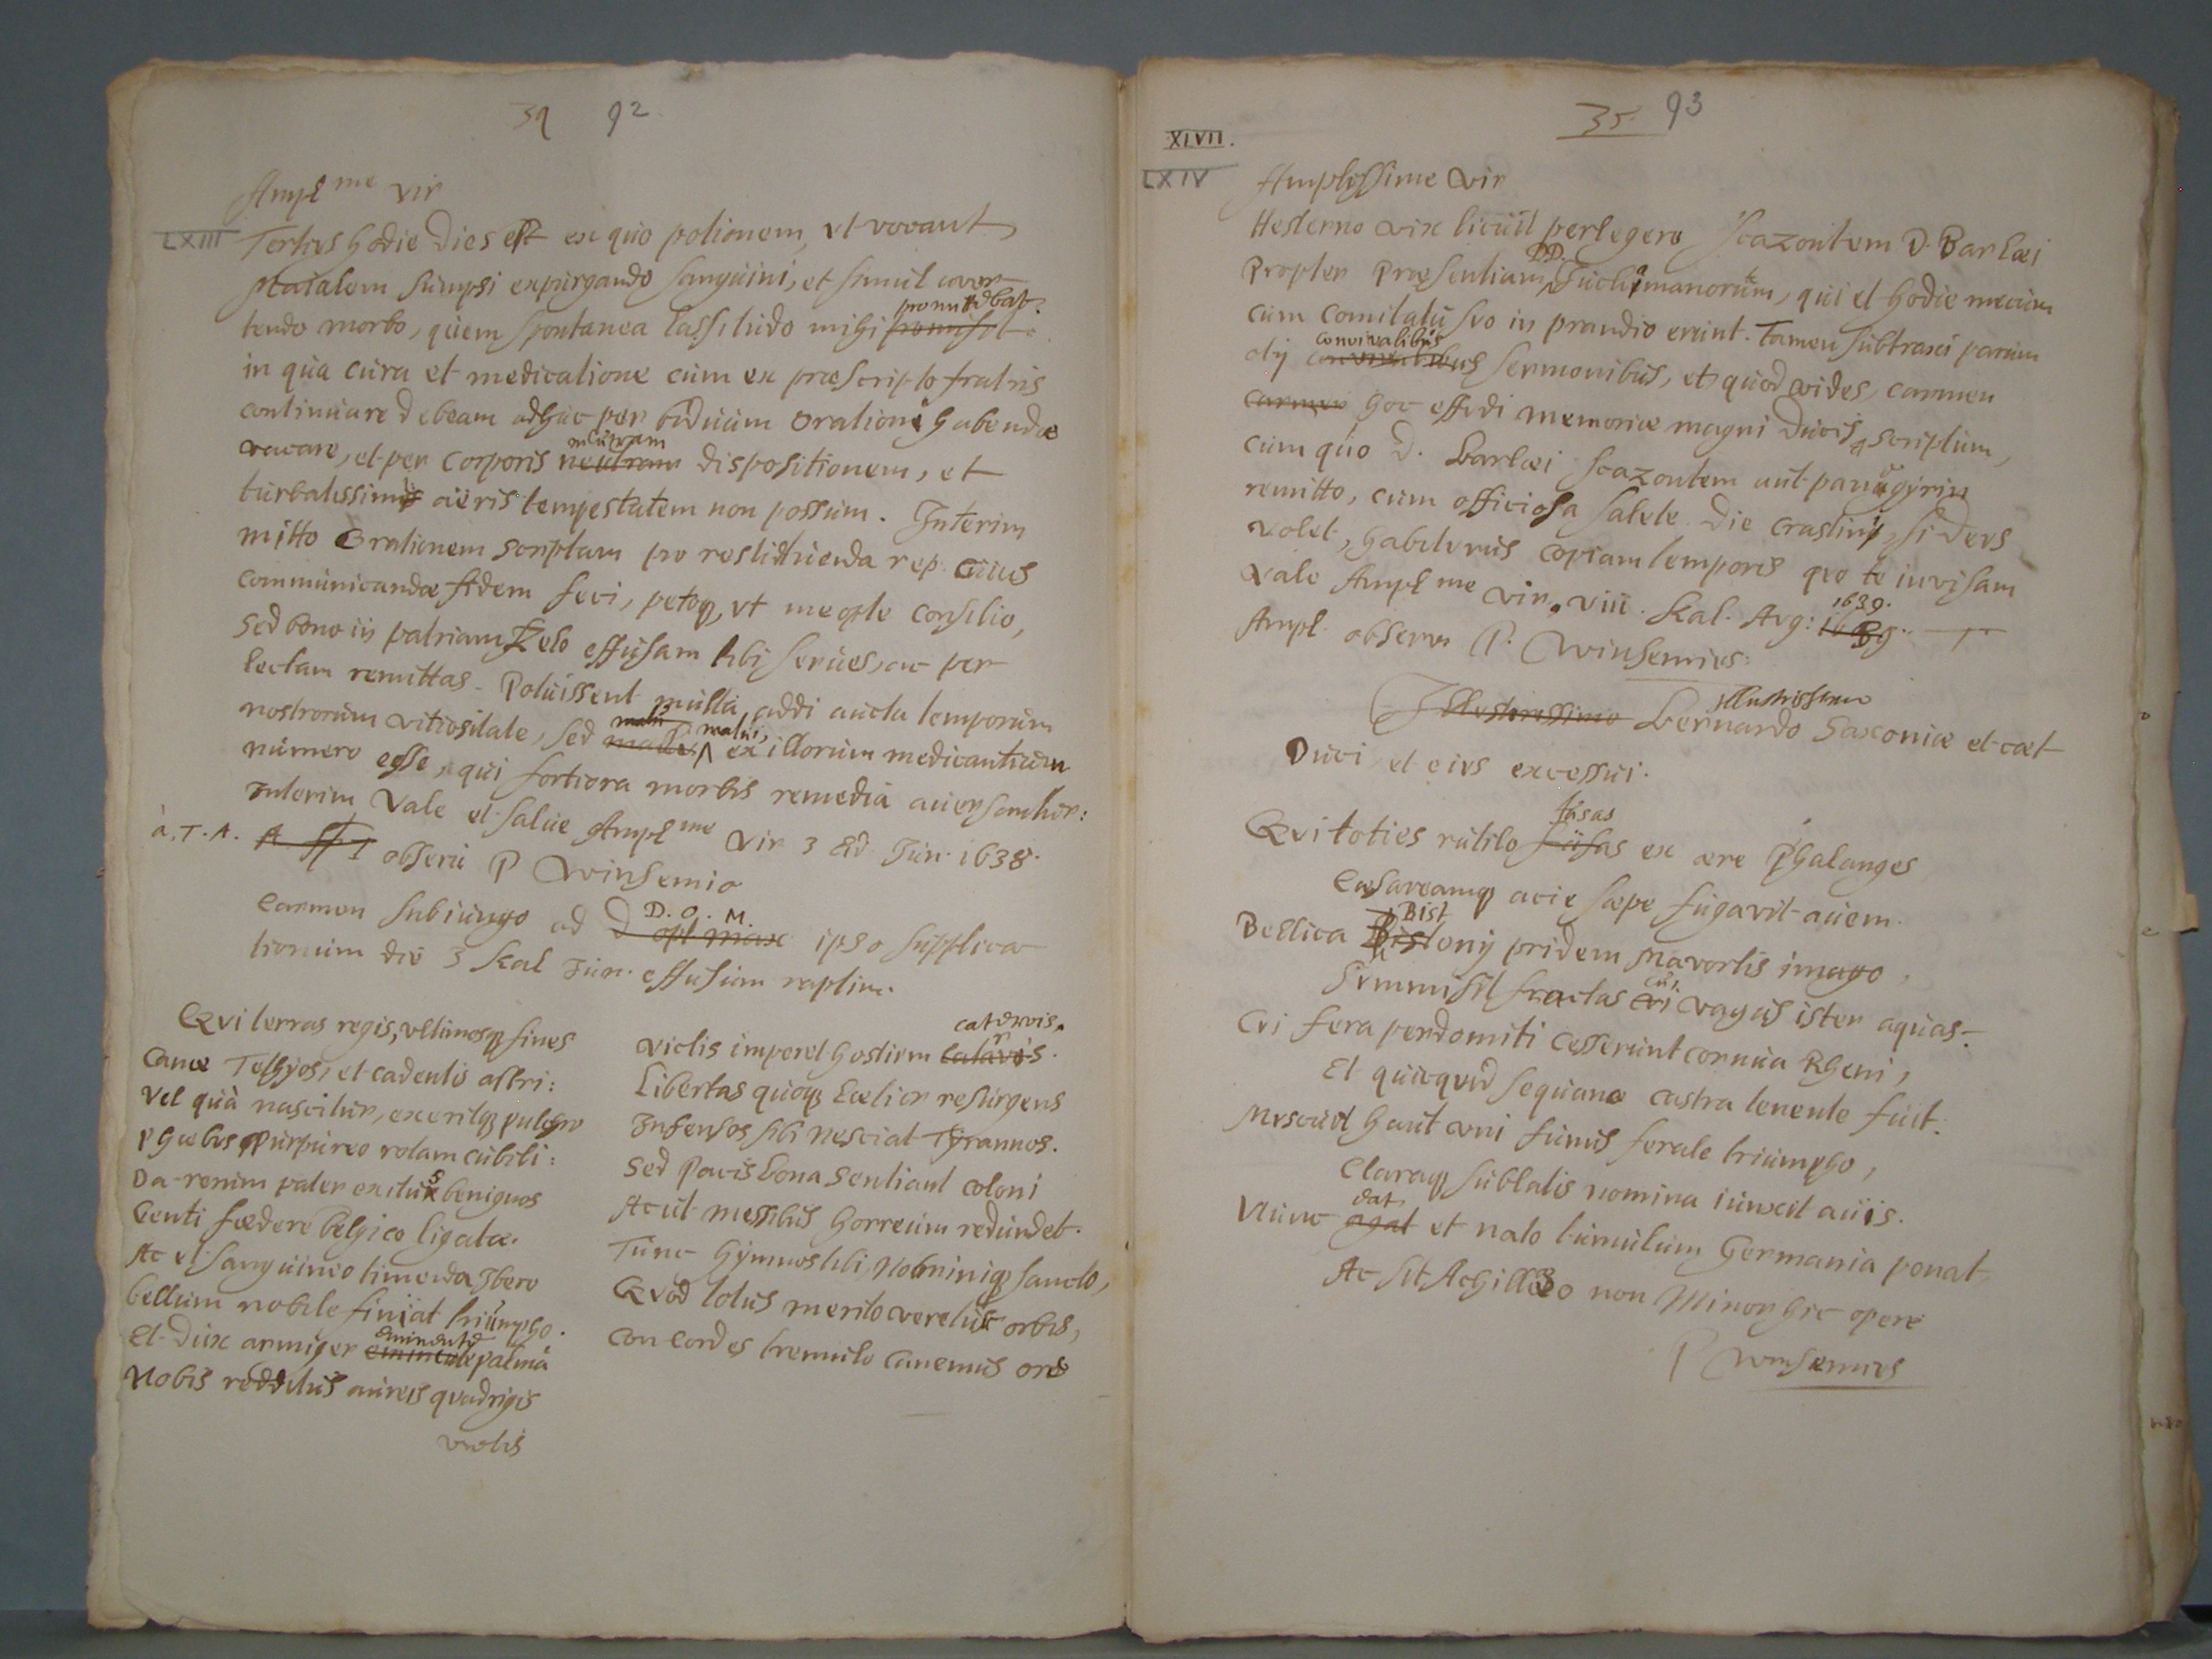 92
Ampl me vir
LXIII Tertius hodie dies est ex quo potionem, ut vocant,
statalem sumpsi expurgando sanguini, et simul aver
promittebat.
tendo morbo, quem spontanea lassitudo mihi promisit
in qua cura et medicatione cum ex præscripto fratris
continuare debeam adhuc per biduum orationi habendæ
neutram
vacare, et per corporis neutram dispositionem, et
turbatissimus aëris tempestatem non possum. Interim
mitto Orationem scriptam pro restituenda rep. cuius
communicandæ fidem feci, petoq, ut me
consilio,
sed bono in patriam zelo effusam tibi serues, ac per
lectam remittas. Potuissent multa addi aucta temporum
malui
nostrorum vitiositate, sed malui, ex illorum medicantium
numero esse, qui fortiora morbis remedia auersantur:
Interim Vale et salue Ampl me Vir 3 Eid Jun. 1638.
à. T. A. obseru P Winsemio
D. O. M.
Carmen subiungo ad D opt max ipso supplica
tionum die 3 Kal Jun. effusum raptim.
Qvi terras regis, ultimosq fines
Canæ Tethyos, et cadentis astri:
Vel quà nascitur, exeritq pulchro
Phœbus purpureo rotam cubili:
Da rerum pater exitus benignos
Genti fœdere Belgico ligatæ.
Ac et sanguineo timenda Ibero
bellum nobile finiat triumpho.
eminente
Et dux armiger eminente palmâ
Nobis redditus aureis quadrigis
victis
catervis.
Victis imperet hostium catervis.
Libertas quoq lætior resurgens
Infensos sibi nesciat Tyrannos.
Sed Pacis bona sentiant coloni
Ac ut messibus horreum redundet.
Tunc hymnos tibi, Nominiq sancto,
Qvod totus merito veretur orbis,
Concordes tremulo canemus ore
35 93
XLVII.
LXIV Amplissime Vir
Hesterno vix licuit perlegere Scazontem D. Barlæi
DD.
Propter Præsentiam Juchamanorum, qui et hodie mecum
cum comitatu suo in prandio erunt. Tamen subtraxi parum
convivalibus
otij convivalibus sermonibus, et, quod vides, carmen
carmen hoc effudi memoriæ magni Ducis scriptum,
cum quo D. Barlæi scazontem aut panegyrin
remitto, cum officiosa salute. Die crastino, si Deus
volet, habiturus copiam temporis quo te invisam
1639.
Vale Ampl me Vir. VIII. Kal. Aug: 1639.
Ampl. observ P. Winsemius.
Illustrissimo
Illustrissimo Bernardo Saxoniæ et cæt
Duci, et eius excessui.
fusas
Qvi toties rutilo fusas ex ære Phalanges
Cæsareamq acie sæpe fugavit auem.
Bist
Bellica Bistonij pridem Mavortis imago
cui
Summisit fractas cui vagus ister aquas.
Cui fera perdomiti cesserunt cornua Rheni,
Et quicquid sequanæ castra tenente fuit.
Miscuit haut uni funus ferale triumpho,
Claraq sublatis nomina iunxit auis.
dat
Nunc agat et nato tumulum Germania ponat
Ac sit Achilleo non Minor hic opere
P Winsemius